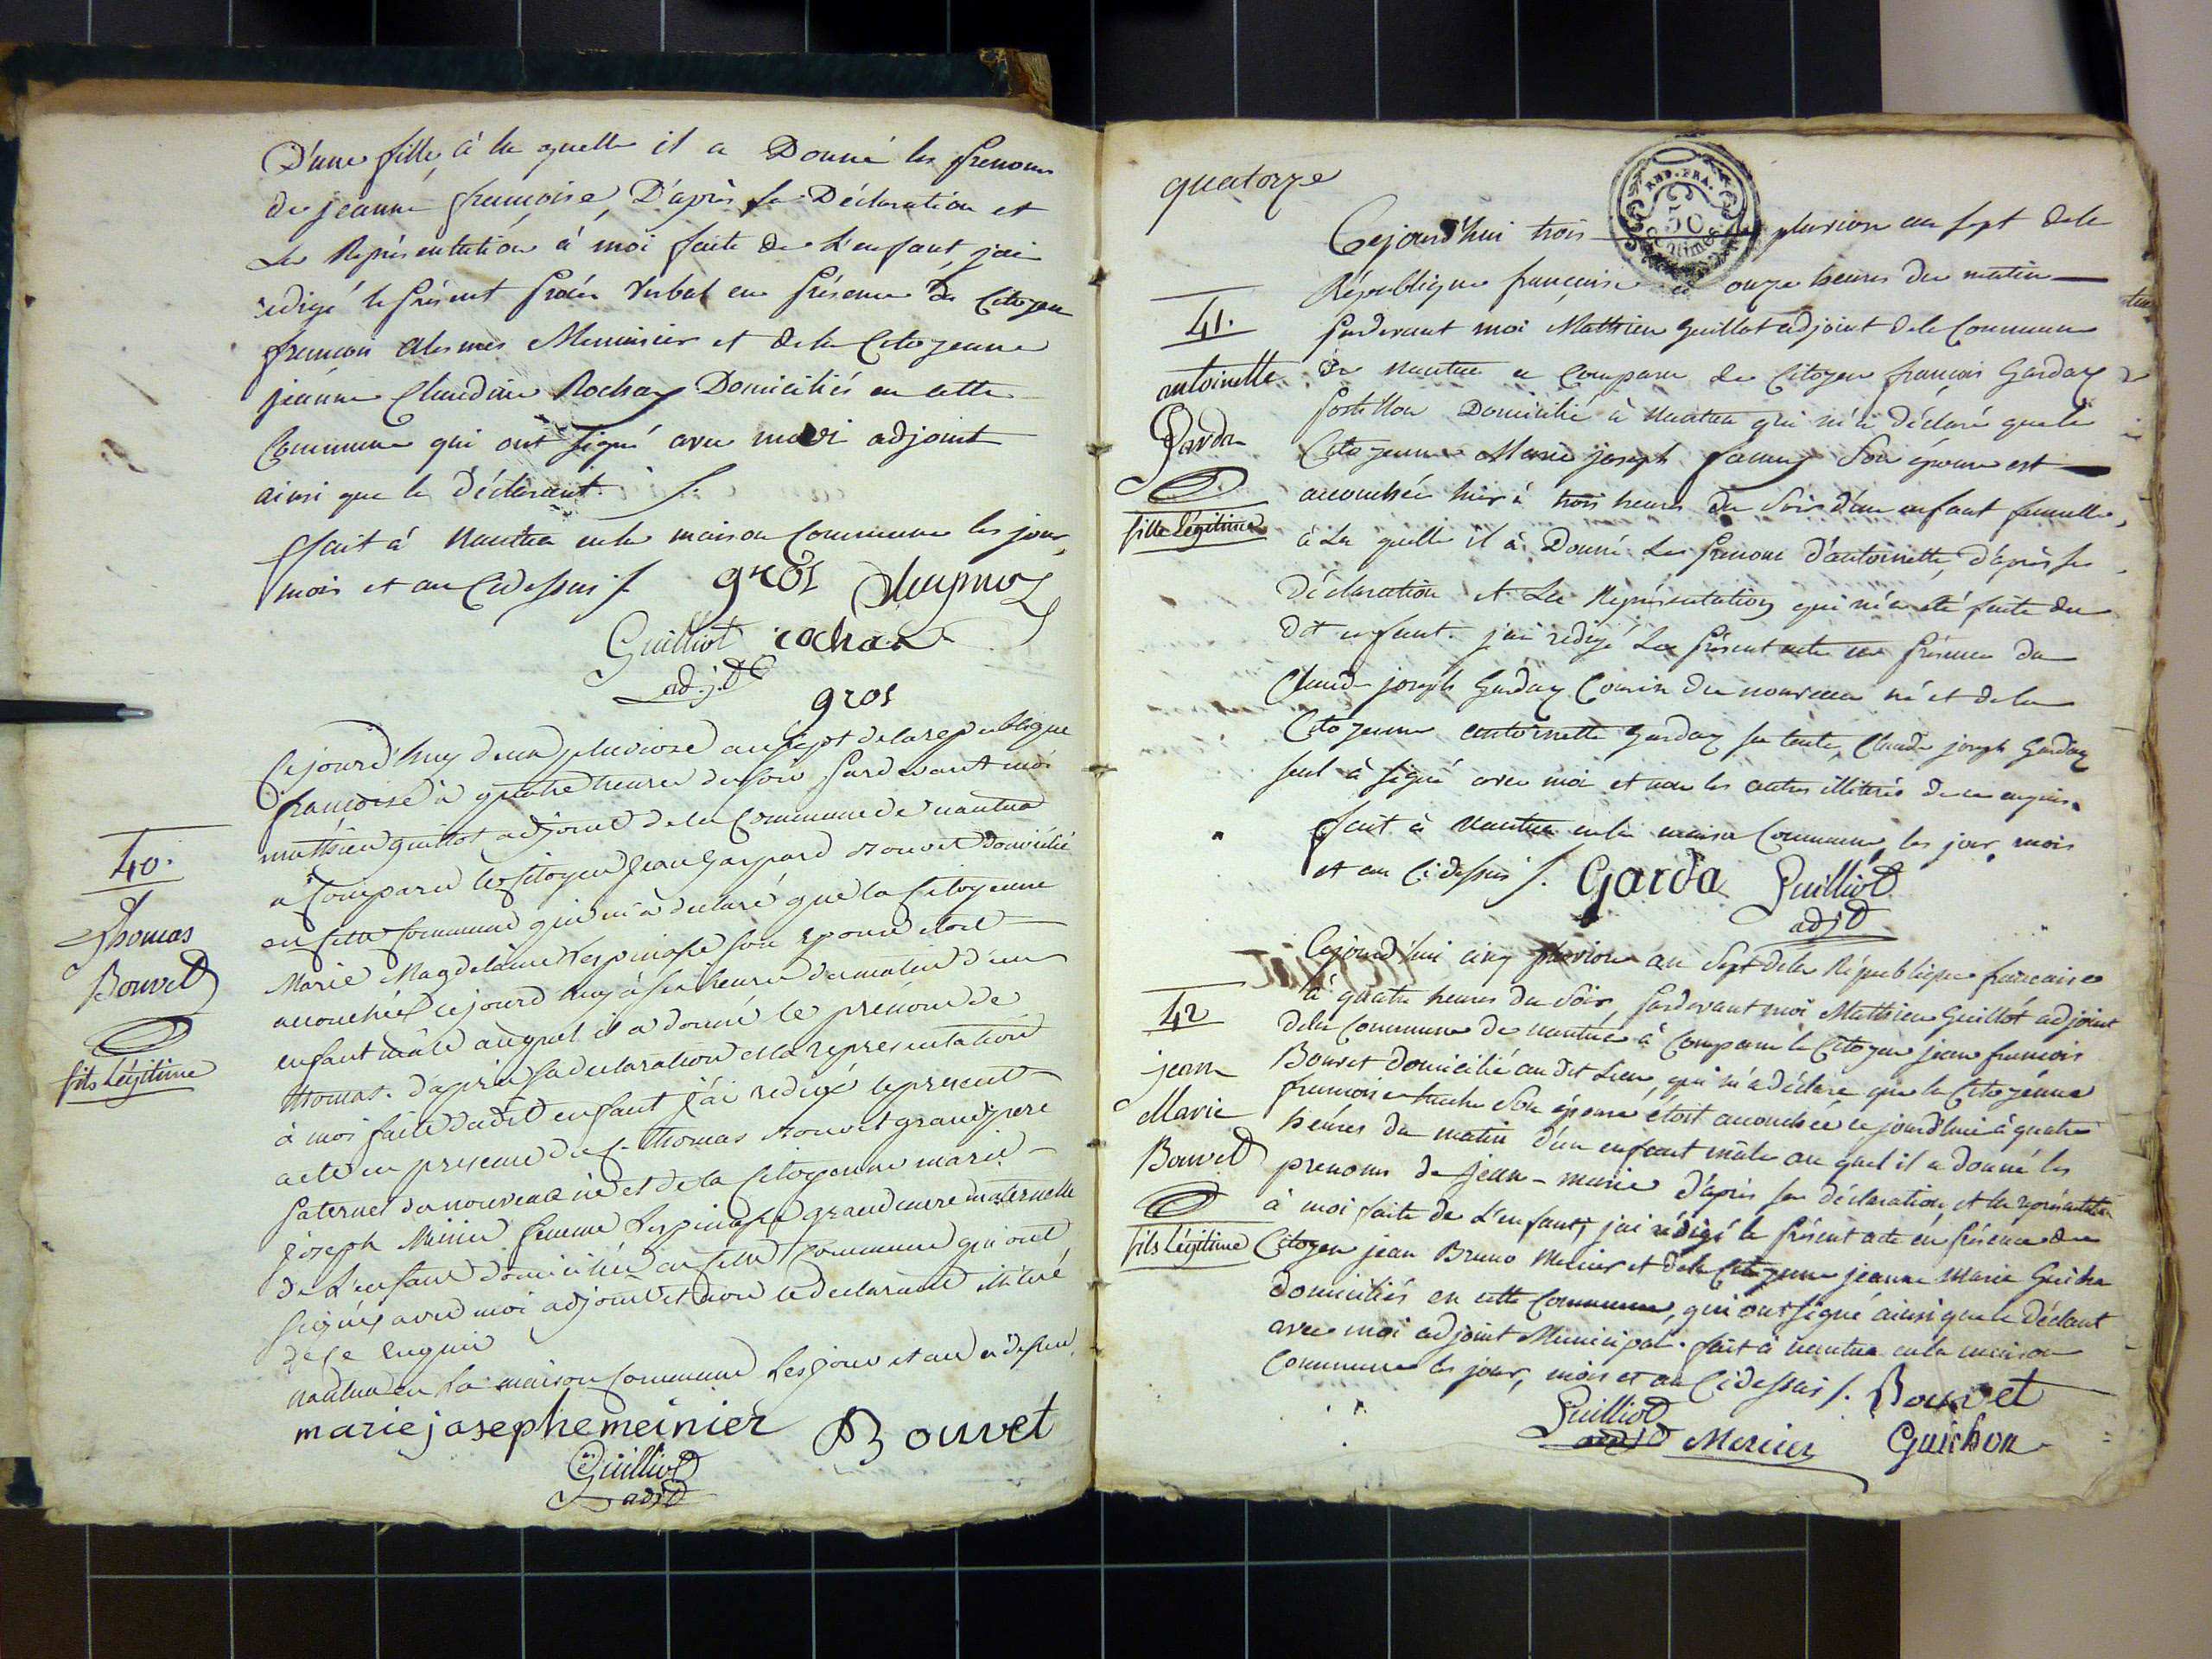 D'une fille, à la quelle il a Donné les prenoms
de jeanne françoise, D'après sa Déclaration et
La Représentation à moi faite de L'enfant, j'ai
rédigé le présent procès Verbal en présence du Citoyen
françois Menuisier et dela Citoyenne
jeanne Claudine Rochay Domiciliés en cette
Commune qui ont signé avec moi adjoint
ainsi que le déclarant. /.
fait à Nantua en la maison Commune les jour,
mois et an Cidessus /. gros
Guilliot rochax
adjt
gros
40.
Thomas
Bouvet
fils Légitime
Cejourd'huy deux pluviose an sept de la republique
françoise à quatre heures du soir pardevant moi
mathieu guillot adjoint de la Commune de nantua
a Comparu le Citoyen Jean Gaspard Bouvet Domicilié
en cette Commune qui m'a declaré que la Citoyenne
Marie Magdelaine Lespinasse son Epouse etoit
accouchée cejourd'huy à six heures du matin d'un
enfant mâle auquel il a donné le prénom de
thomas. d'après sa declaration et la representation
à moi faite dudit enfant j'ai redigé le present
acte en presence du C. thomas Bouvet grand pere
paternel du nouveau né et de la Citoyenne marie
Joseph Minier femme Lespinasse grand mere maternelle
de L'enfant domiciliés en cette Commune qui ont
signés avec moi adjoint et non le declarant illitéré
de ce enquis
nantua en La maison Commune Les jour et an cidessus.
marie josephe meinier Bouvet
Guilliot
adjt
quatorze
REP. FRA.
50
Centimes
Cejourd'hui trois pluviose an sept dela
République française à onze heures du matin
41.
antoinette
Garda
fille Légitime
pardevant moi Mathieu guillot adjoint dela Commune
de nantua a Comparu le Citoyen françois Garday
postillon Domicilié à Nantua qui m'a déclaré que la
Citoyenne Marie joseph son épouse est
accouchée hier à trois heures du Soir d'un enfant femelle,
à La quelle il à Donné Le prenom d'antoinette, d'après sa
Déclaration et La Représentation qui m'a été faite du
dit enfant. j'ai rédigé Le présent acte en présence du
Claude joseph Garday Cousin du nouveau né et dela
Citoyenne antoinette Garday sa tante, Claude joseph Garday
seul à signé avec moi et non les autres illitérés de ce enquis.
fait à Nantua en la maison Commune, les jour, mois
et an Cidessus /. Garda Guilliot
adjt
42
jean
Marie
Bouvet
fils Légitime
Cejourd'hui cinq pluviose an Sept dela République française
à quatre heures du Soir, pardevant moi Mathieu Guillot adjoint
dela Commune de nantua à Comparu le Citoyen jean françois
Bouvet domicilié au dit Lieu, qui m'a déclaré que la Citoyenne
françoise son épouse étoit accouchée cejourd'hui à quatre
heures du matin d'un enfant mâle au quel il a donné les
prenoms de jean-marie d'après sa déclaration, et la représentation
à moi faite de L'enfant, j'ai rédigé le présent acte en présence du
Citoyen jean Bruno Mercier et dela Citoyenne jeanne Marie Guichon
domiciliés en cette Commune, qui ont signé ainsi que le Déclant
avec moi adjoint Municipal. fait à nantua en la maison
Commune les jour, mois et an Cidessus /. Bouvet
Guilliot
adjt Mercier Guichon